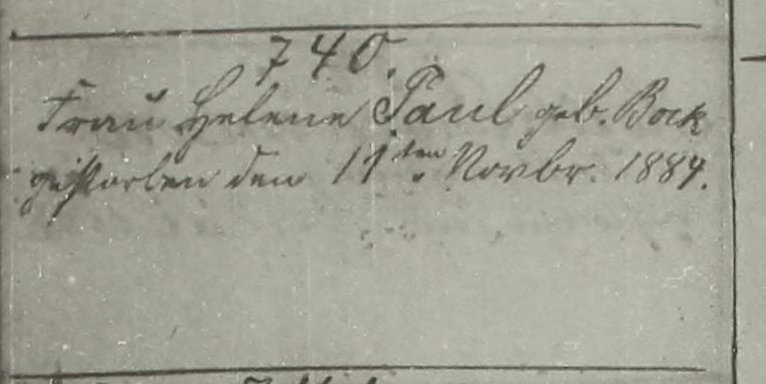 740.
Frau Helene Paul geb. Bock
gestorben den 11ten Novbr. 1884.